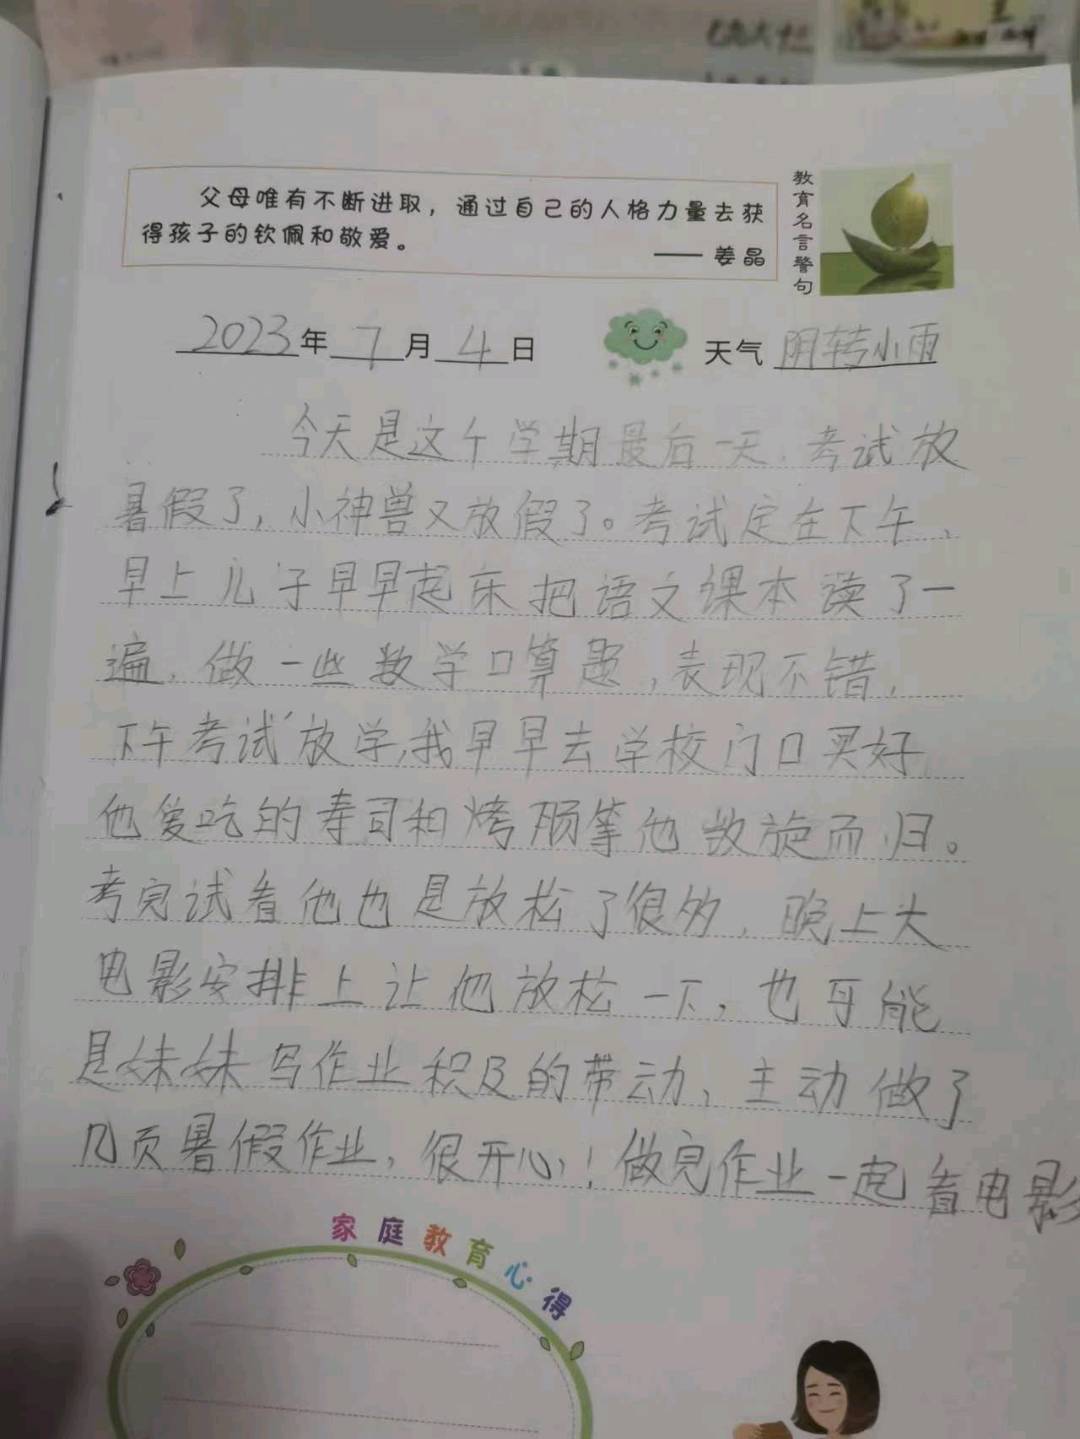 父母唯有不断进取，通过自己的人格力量去获
得孩子的钦佩和敬爱。
—— 姜晶
教育名言警句
2023年7月4日
天气 阴转小雨
今天是这个学期最后一天.考试放
暑假了，小神兽又放假了。考试定在下午、
早上儿子早早起床把语文课本读了一
遍，做一些数学口算题，表现不错，
下午考试放学，我早早去学校门口买好
他爱吃的寿司和烤肠等他敀旋而归。
考完试看他也是放松了很多，晚上大
电影安排上让他放松一下，也可能
是妹妹写作业积及的带动，主动做了
几页暑假作业，很开心！做完作业一起看电影
家庭教育心得